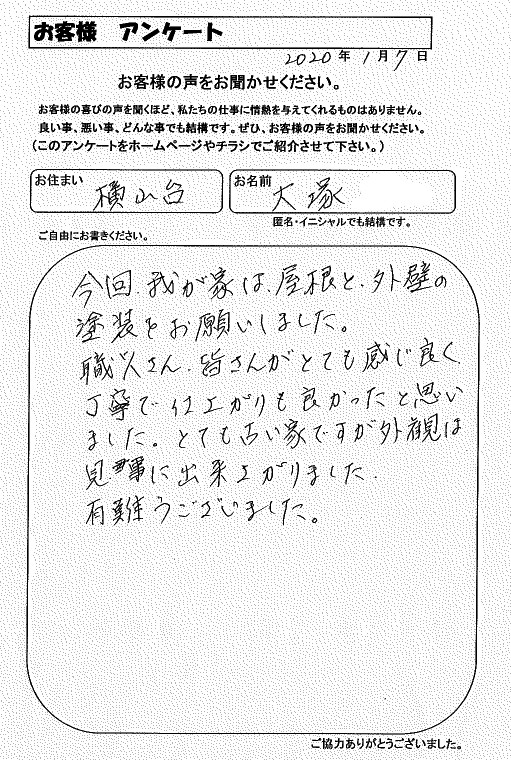 お客様 アンケート
2020年1月7日
お客様の声をお聞かせください。
お客様の喜びの声を聞くほど、私たちの仕事に情熱を与えてくれるものはありません。
良い事、悪い事、どんな事でも結構です。ぜひ、お客様の声をお聞かせください。
(このアンケートをホームページやチラシでご紹介させて下さい。)
お住まい 横山台 お名前 大塚
匿名・イニシャルでも結構です。
ご自由にお書きください。
今回、我が家は、屋根と、外壁の
塗装をお願いしました。
職人さん、皆さんがとても感じ良く
丁寧で仕上がりも良かったと思い
ました。とても古い家ですが外観は
見事に出来上がりました。
有難うございました。
ご協力ありがとうございました。